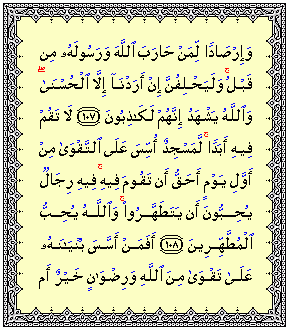 وَإِرْصَادًا لِّمَنْ حَارَبَ ٱللَّهَ وَرَسُولَهُۥ مِن
قَبْلُ ۚ وَلَيَحْلِفُنَّ إِنْ أَرَدْنَآ إِلَّا ٱلْحُسْنَىٰ ۖ
وَٱللَّهُ يَشْهَدُ إِنَّهُمْ لَكَٰذِبُونَ ﴿١٠٧﴾ لَا تَقُمْ
فِيهِ أَبَدًا ۚ لَّمَسْجِدٌ أُسِّسَ عَلَى ٱلتَّقْوَىٰ مِنْ
أَوَّلِ يَوْمٍ أَحَقُّ أَن تَقُومَ فِيهِ ۚ فِيهِ رِجَالٌ
يُحِبُّونَ أَن يَتَطَهَّرُوا۟ ۚ وَٱللَّهُ يُحِبُّ
ٱلْمُطَّهِّرِينَ ﴿١٠٨﴾ أَفَمَنْ أَسَّسَ بُنْيَٰنَهُۥ
عَلَىٰ تَقْوَىٰ مِنَ ٱللَّهِ وَرِضْوَٰنٍ خَيْرٌ أَم